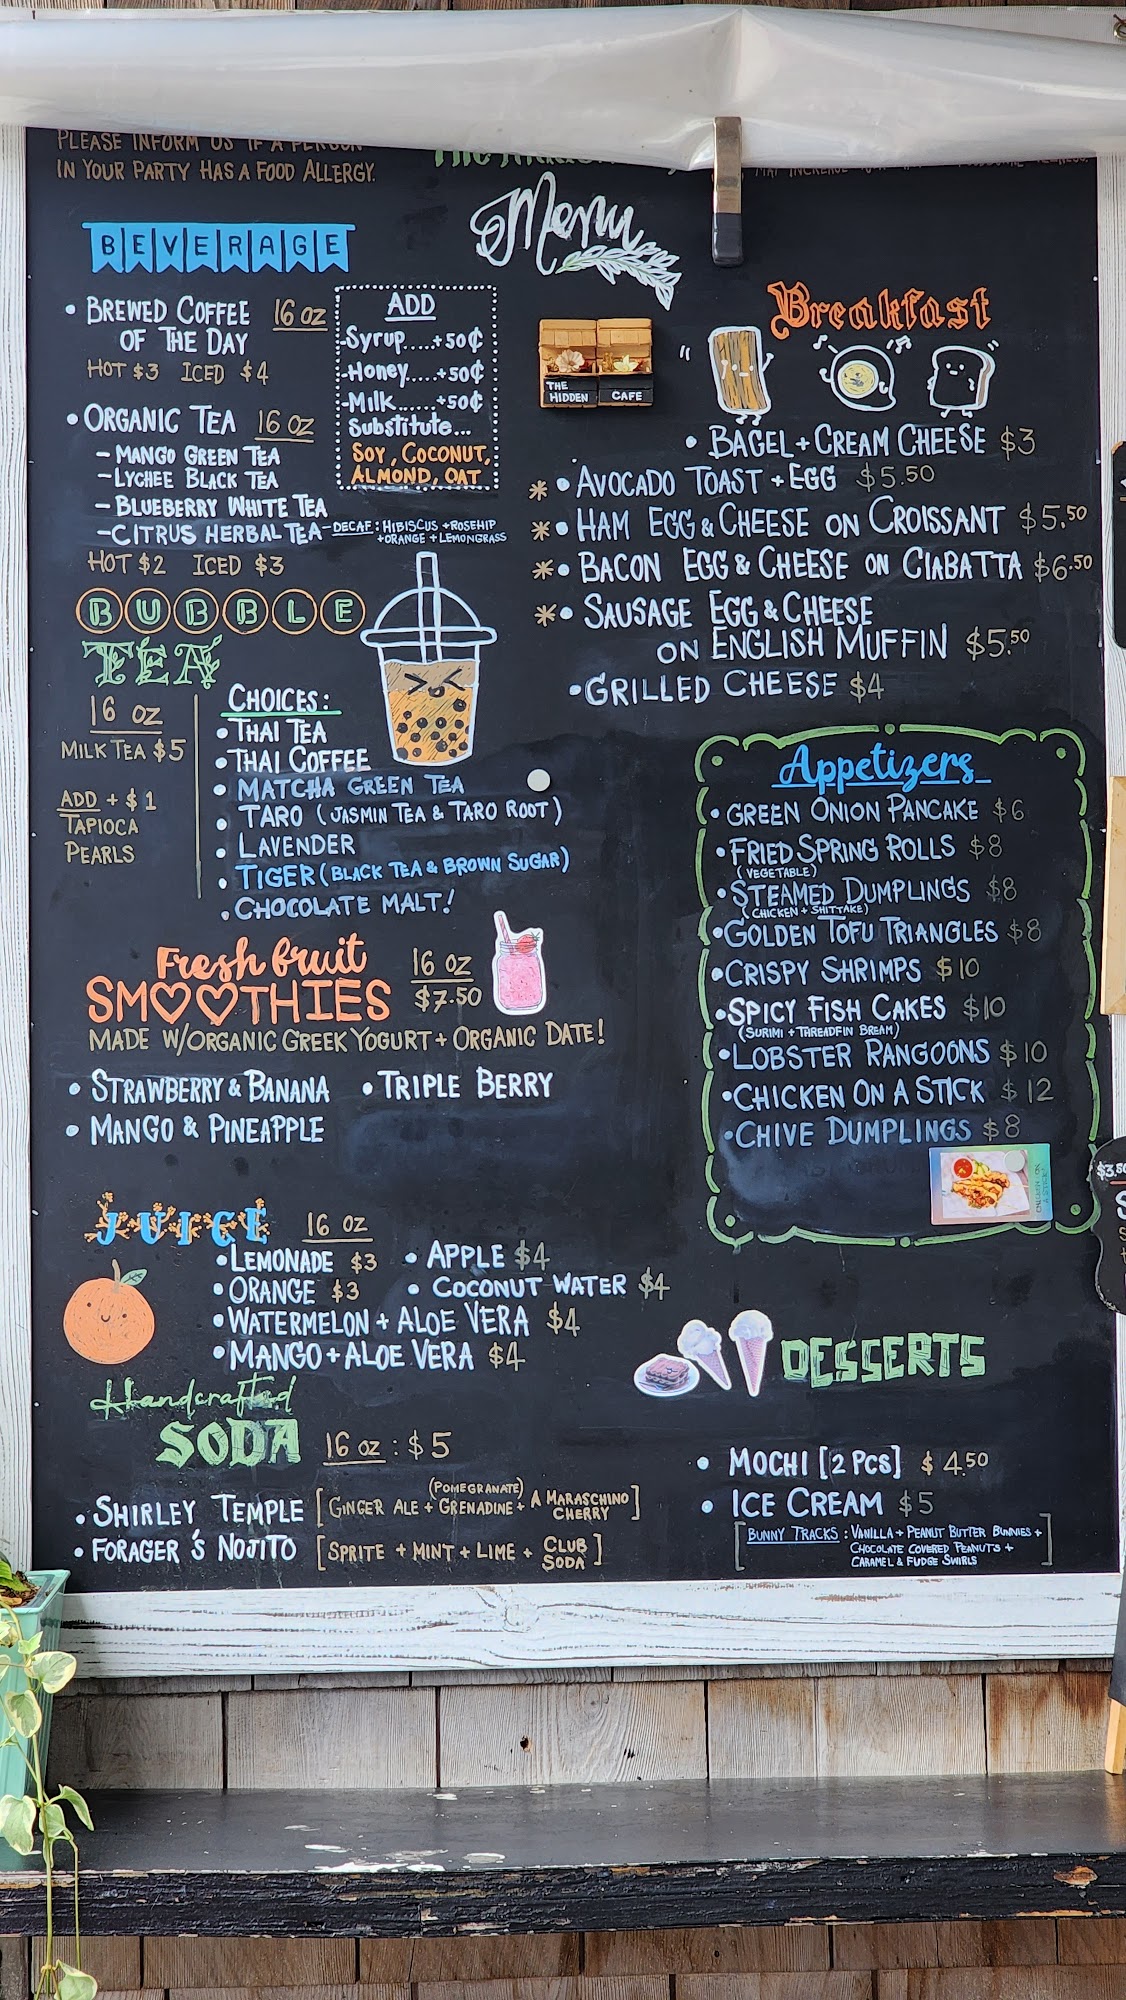 PLEASE INFORM US IF A PERSON
IN YOUR PARTY HAS A FOOD ALLERGY.
MAY INCREASE
Menu
BEVERAGE
• BREWED COFFEE 16 OZ
OF THE DAY
HOT $3 ICED $4
• ORGANIC TEA 16 OZ
- MANGO GREEN TEA
- LYCHEE BLACK TEA
- BLUEBERRY WHITE TEA
- CITRUS HERBAL TEA - DECAF: HIBISCUS + ROSEHIP
+ ORANGE + LEMONGRASS
HOT $2 ICED $3
ADD
-Syrup.....+50¢
-Honey.....+50¢
-Milk......+50¢
Substitute...
SOY, COCONUT,
ALMOND, OAT
BUBBLE
TEA
16 OZ
MILK TEA $5
ADD + $1
TAPIOCA
PEARLS
CHOICES:
• THAI TEA
• THAI COFFEE
• MATCHA GREEN TEA
• TARO (JASMIN TEA & TARO ROOT)
• LAVENDER
• TIGER (BLACK TEA & BROWN SUGAR)
• CHOCOLATE MALT!
Fresh fruit
SMOOTHIES
16 OZ
$7.50
MADE W/ORGANIC GREEK YOGURT + ORGANIC DATE!
• STRAWBERRY & BANANA • TRIPLE BERRY
• MANGO & PINEAPPLE
JUICE 16 OZ
• LEMONADE $3 • APPLE $4
• ORANGE $3 • COCONUT WATER $4
• WATERMELON + ALOE VERA $4
• MANGO + ALOE VERA $4
Handcrafted
SODA 16 OZ : $5
• SHIRLEY TEMPLE [GINGER ALE + (POMEGRANATE) GRENADINE + A MARASCHINO CHERRY]
• FORAGER'S NOJITO [SPRITE + MINT + LIME + CLUB SODA]
THE HIDDEN CAFE
Breakfast
• BAGEL + CREAM CHEESE $3
* • AVOCADO TOAST + EGG $5.50
* • HAM EGG & CHEESE ON CROISSANT $5.50
* • BACON EGG & CHEESE ON CIABATTA $6.50
* • SAUSAGE EGG & CHEESE
ON ENGLISH MUFFIN $5.50
• GRILLED CHEESE $4
Appetizers
• GREEN ONION PANCAKE $6
• FRIED SPRING ROLLS $8
(VEGETABLE)
• STEAMED DUMPLINGS $8
(CHICKEN + SHITTAKE)
• GOLDEN TOFU TRIANGLES $8
• CRISPY SHRIMPS $10
• SPICY FISH CAKES $10
(SURIMI + THREADFIN BREAM)
• LOBSTER RANGOONS $10
• CHICKEN ON A STICK $12
• CHIVE DUMPLINGS $8
CHICKEN ON
A STICK
$3.50
DESSERTS
• MOCHI [2 PCS] $4.50
• ICE CREAM $5
[BUNNY TRACKS : VANILLA + PEANUT BUTTER BUNNIES +
CHOCOLATE COVERED PEANUTS +
CARAMEL & FUDGE SWIRLS]